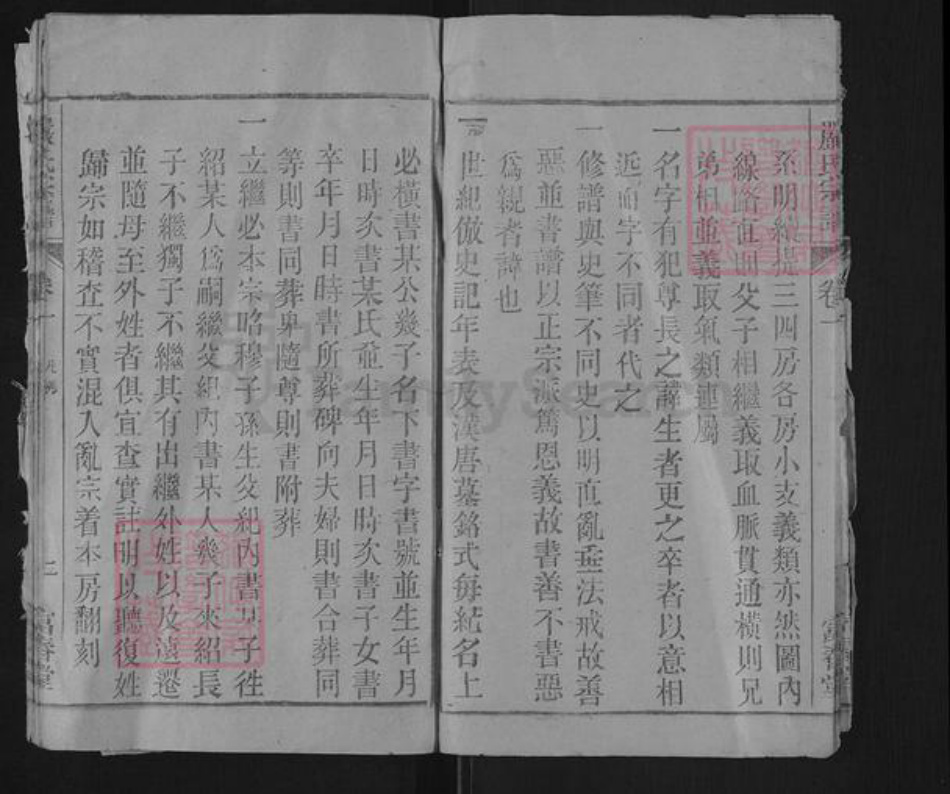 嚴氏宗譜
卷一
富春堂
系明線提三四房各房小支義類亦然圖內
線路直曲父子相繼義取血脈貫通橫則兄
弟相並義取氣類連屬
一名字有犯尊長之諱生者更之卒者以意相
近而字不同者代之
一修譜與史筆不同史以明直亂垂法戒故善
惡並書譜以正宗派篤恩義故書善不書惡
為親者諱也
一世紀倣史記年表及漢唐墓銘式每紀名上
必橫書某公幾子名下書字書號並生年月
日時次書某氏並生年月日時次書子女書
卒年月日時書所葬碑向夫婦則書合葬同
等則書同葬卑隨尊則書附葬
一立繼必本宗昭穆子孫生父紀內書某子往
紹某人為嗣繼父紀內書某人幾子來紹長
子不繼獨子不繼其有出繼外姓以及遠遷
並隨母至外姓者俱宜查實註明以聽復姓
歸宗如稽查不實混入亂宗着本房翻刻
卷一
二
富春堂